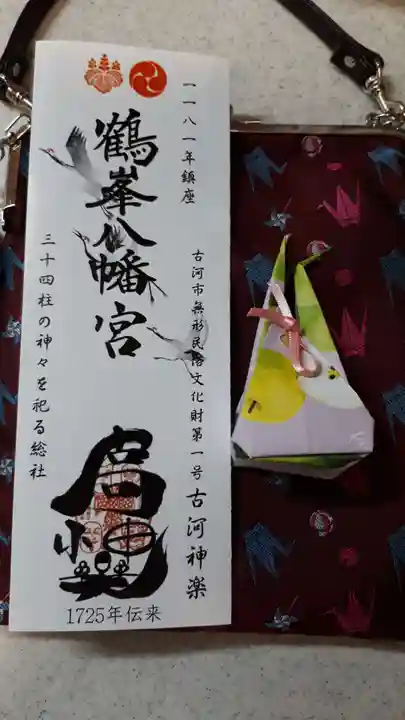 一一八一年鎮座
鶴峯八幡宮
古河市無形民俗文化財第一号古河神楽
三十四柱の神々を祀る総社
1725年伝来